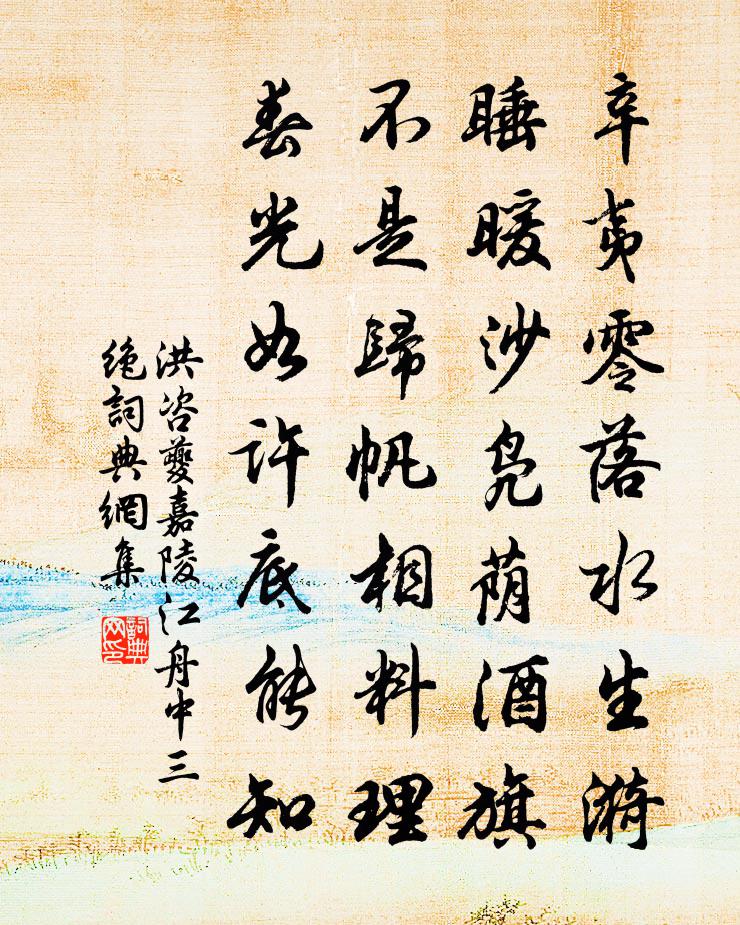 辛夷零落水生漪
睡暖沙凫荫酒旗
不是歸帆相料理
春光如许底能知
洪咨夔嘉陵江舟中三
绝詞典網集
詞典
网印